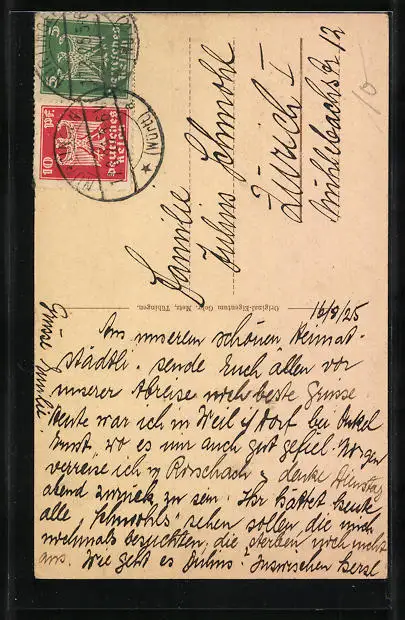 Familie
Julius Schmohl
Zürich I
Mühlebachstr 12
10
Original-Eigentum Gebr. Metz, Tübingen.
16/8/25
Aus unserem schönen Heimat-
städtli sende Euch allen vor
unserer Abreise noch beste Grüsse
Heute war ich in Weil i/ Dorf bei Onkel
Ernst, wo es mir auch gut gefiel. Morgen
verreise ich n/ Rorschach u. denke Dienstag
abend zurück zu sein. Ihr hättet heute
alle Schmohls sehen sollen die mich
nochmals besuchten, die sterben noch nicht
aus. Wie geht es Julius? Inzwischen herzl
Grüsse
Deutsches Reich
5
Deutsches Reich
10
(Württ)